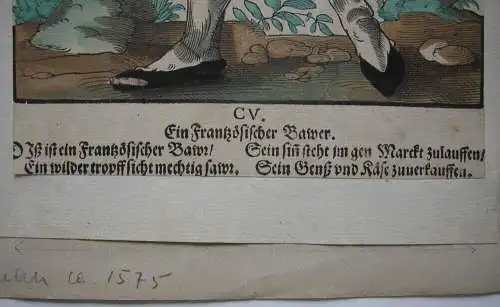 CV.
Ein Frantzösischer Bawer.
DIß ist ein Frantzösischer Bawr/ Sein siñ steht jm gen Marckt zulauffen/
Ein wilder tropff sicht mechtig sawr. Sein Genß vnd Käse zuuerkauffen.
ca. 1575